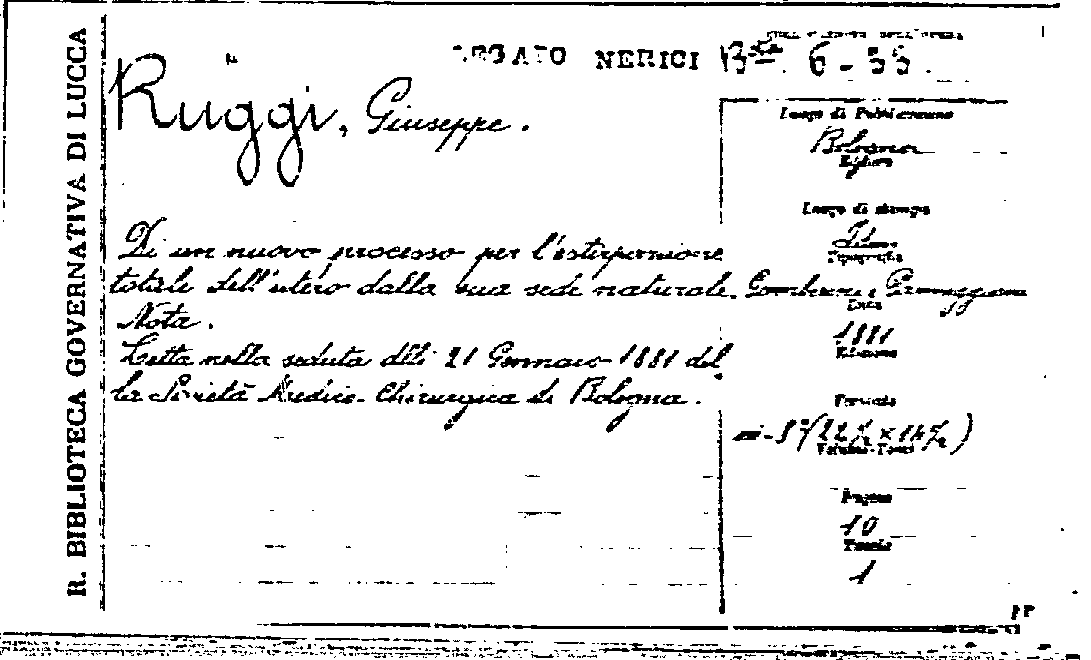 R. BIBLIOTECA GOVERNATIVA DI LUCCA
LEGATO NERICI B.ta 6-55.
Ruggi, Giuseppe.
Di un nuovo processo per l'estirpazione
totale dell'utero dalla sua sede naturale.
Nota.
Letta nella seduta delli 21 Gennaio 1881 del
la Società Medico-Chirurgica di Bologna.
Luogo di Pubblicazione
Bologna
Editore
Luogo di stampa
Id.
Tipografia
Gamberini e Parmeggiani
Data
1881
Edizione
Formato
in-8°(22½ × 14½)
Volume-Tomi
Pagine
10
Tavole
1